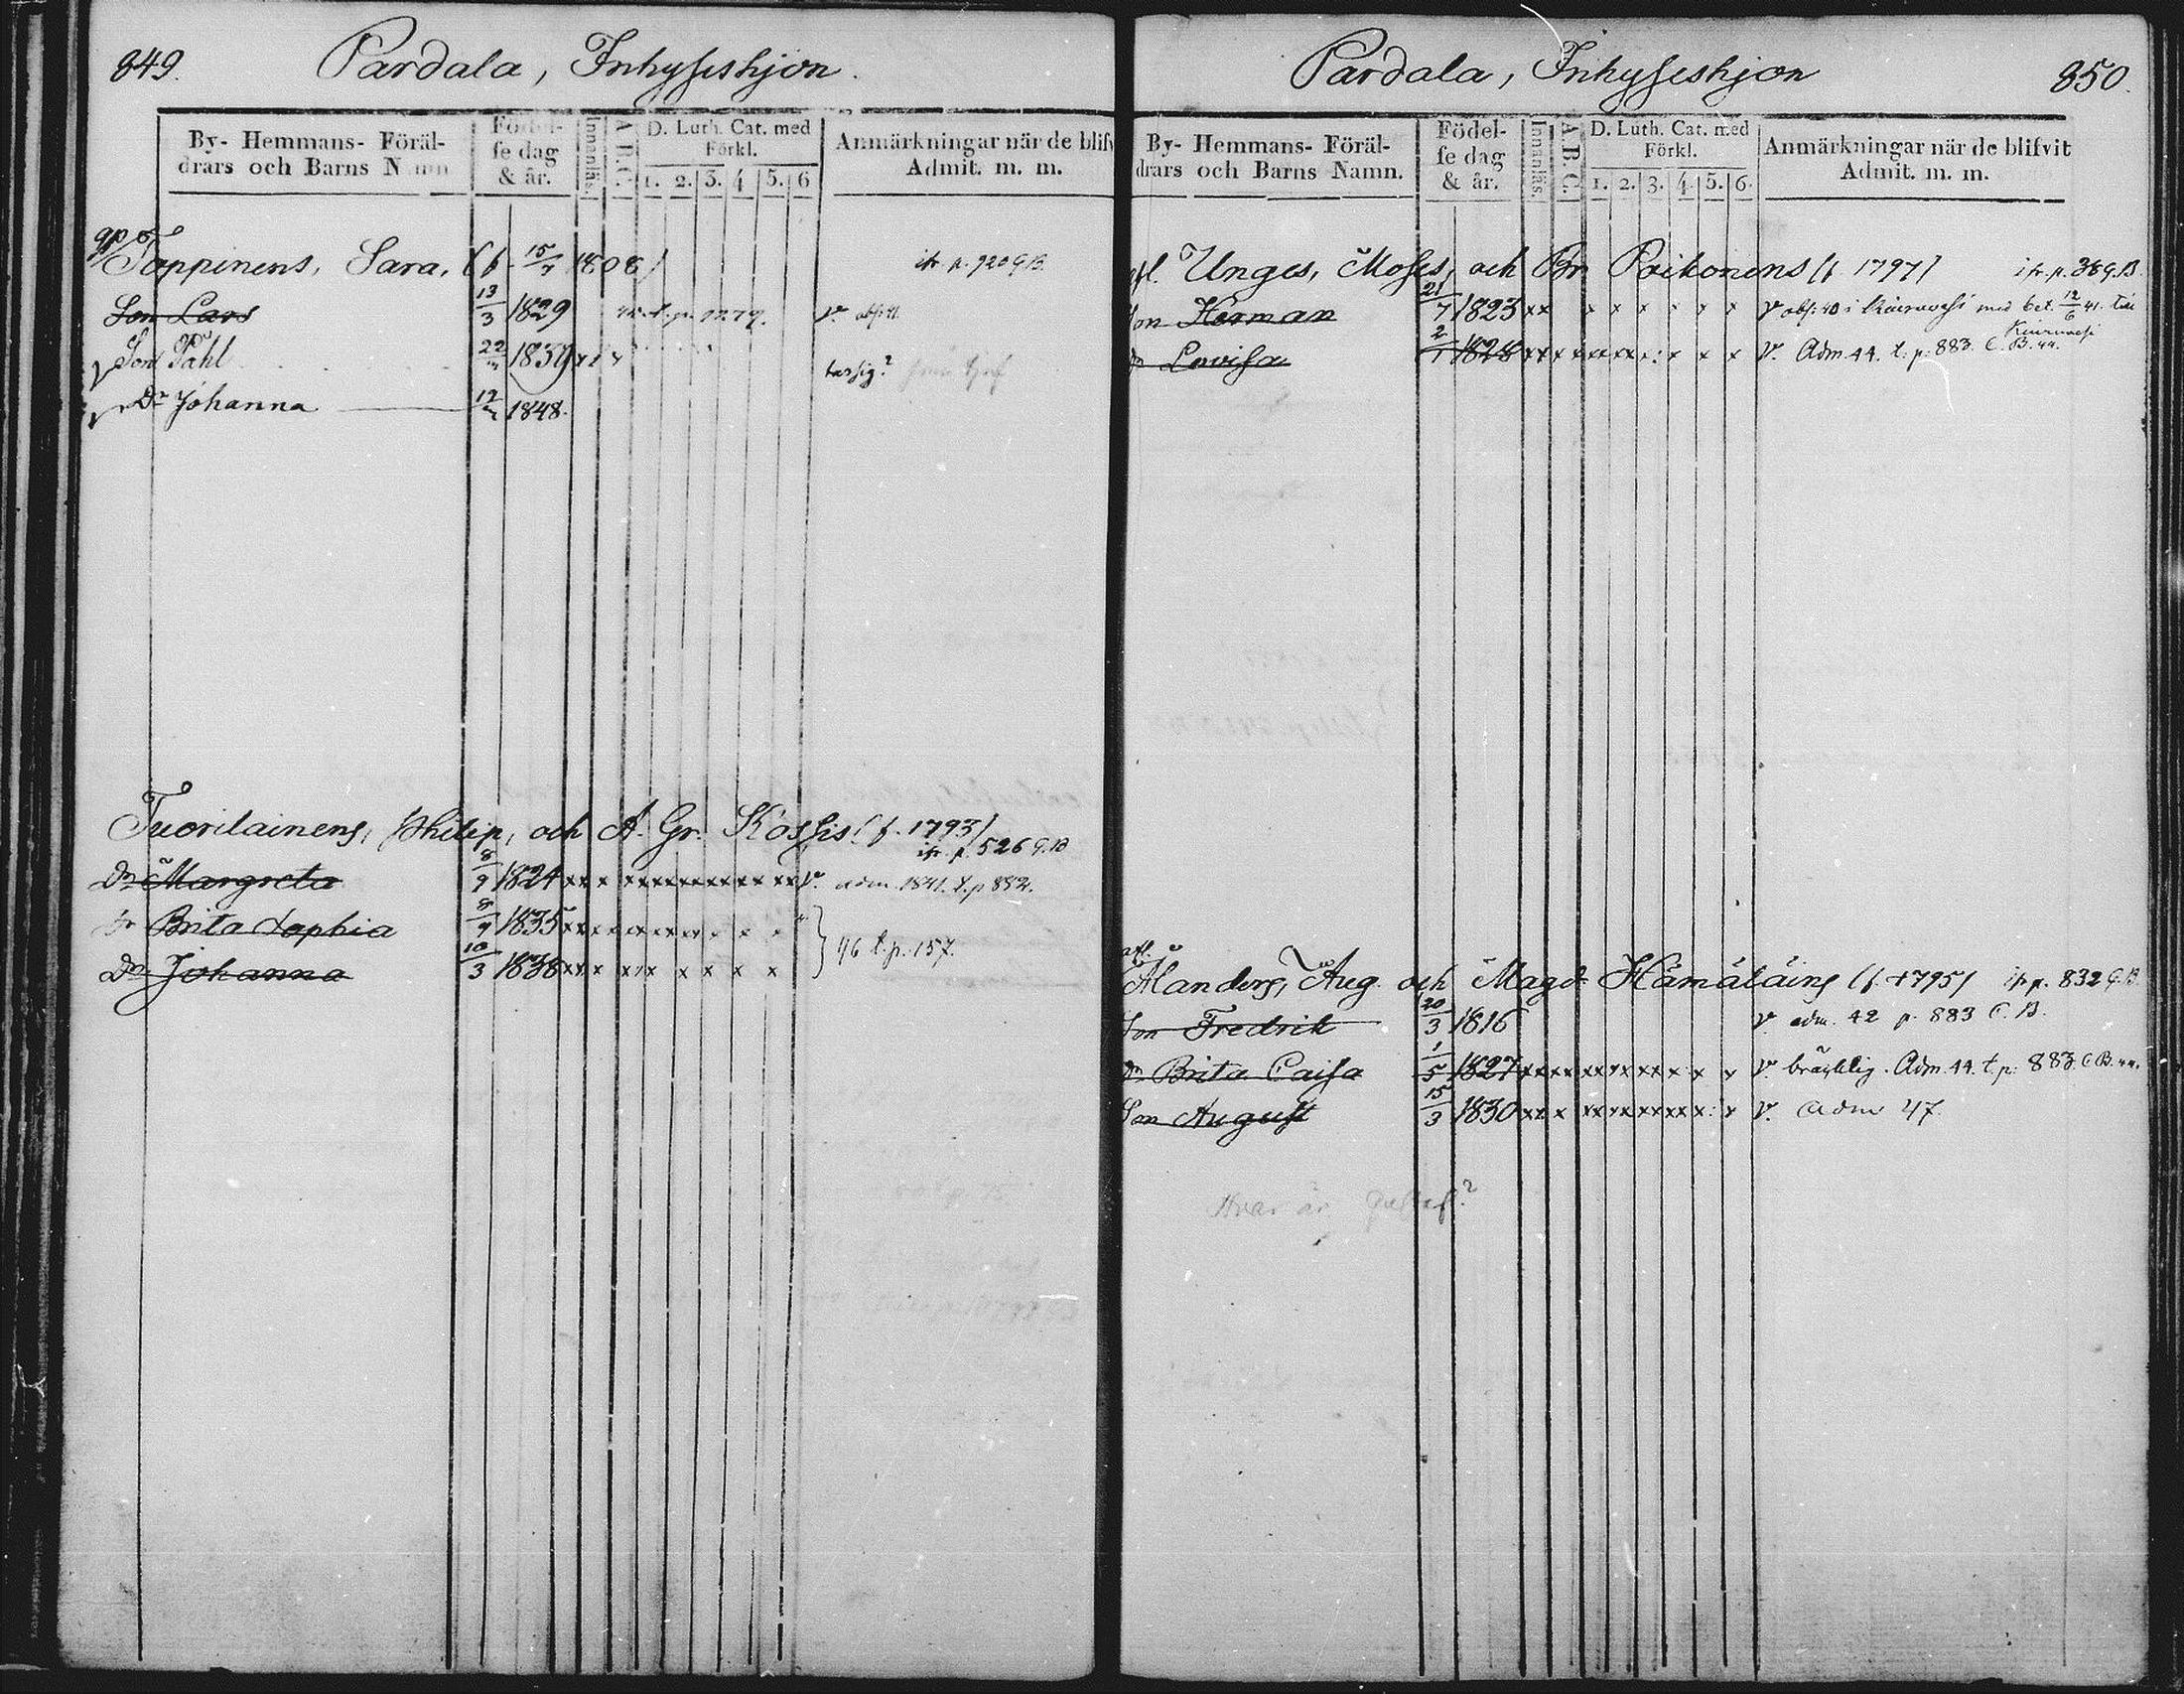 849.
Pardala, Inhyseshjon.
By- Hemmans- Föräl-
drars och Barns Namn
Födel-
se dag
& år.
Innanläs.
A.B.C.
D. Luth. Cat. med
Förkl.
1. 2. 3. 4 5. 6
Anmärkningar när de blifv
Admit. m. m.
Tappinens, Sara, (f. 15/7 1808)
ifr. p. 720 G.B.
Son Lars 13/3 1829 t. p. 1277. v. abs: 41
Son Påhl 22 1839
Dr Johanna 12 1848.
Tuorilainens, Philip, och A. Gr. Kossis (f. 1793)
ifr. p. 526 G.B
Dr Margreta 8/9 1824 xx x xxxxxxxxxxx xx v. adm. 1841. t. p 882.
Dr Brita Sophia 8/9 1835
46 t. p. 157.
Dr Johanna 10/3 1838 xxx x x x x x x x
850.
Pardala, Inhyseshjon
By- Hemmans- Föräl-
drars och Barns Namn.
Födel-
se dag
& år.
Innanläs.
A.B.C.
D. Luth. Cat. med
Förkl.
1. 2. 3. 4. 5. 6.
Anmärkningar när de blifvit
Admit. m. m.
afl. Unges, Moses, och Br Poikonens (f 1797) ifr. p. 38 G.B.
Son Herman 21/7 1823 xx x x x x x x v abs: 40 i Kiuruvesi med bet. 12/6 41. till
Kiuruvesi
Dr Lovisa 2/1 1828 v. Adm. 44. t. p. 883. C. B. 44.
afl.
Ålanders, Aug. och Magd. Hämäläins (f. 1795) ifr. p. 832 G.B.
Son Fredrik 20/3 1816 v. adm. 42 p. 883 C. B.
Dr Brita Caisa 1/5 1827 xxxx xxxxxxx x x v. bräcklig. Adm. 44. t. p. 883. C. B. 44.
Son August 15/3 1830 xx x xxxxxxxx x: x v. adm 47.
Hvar är Gustaf?